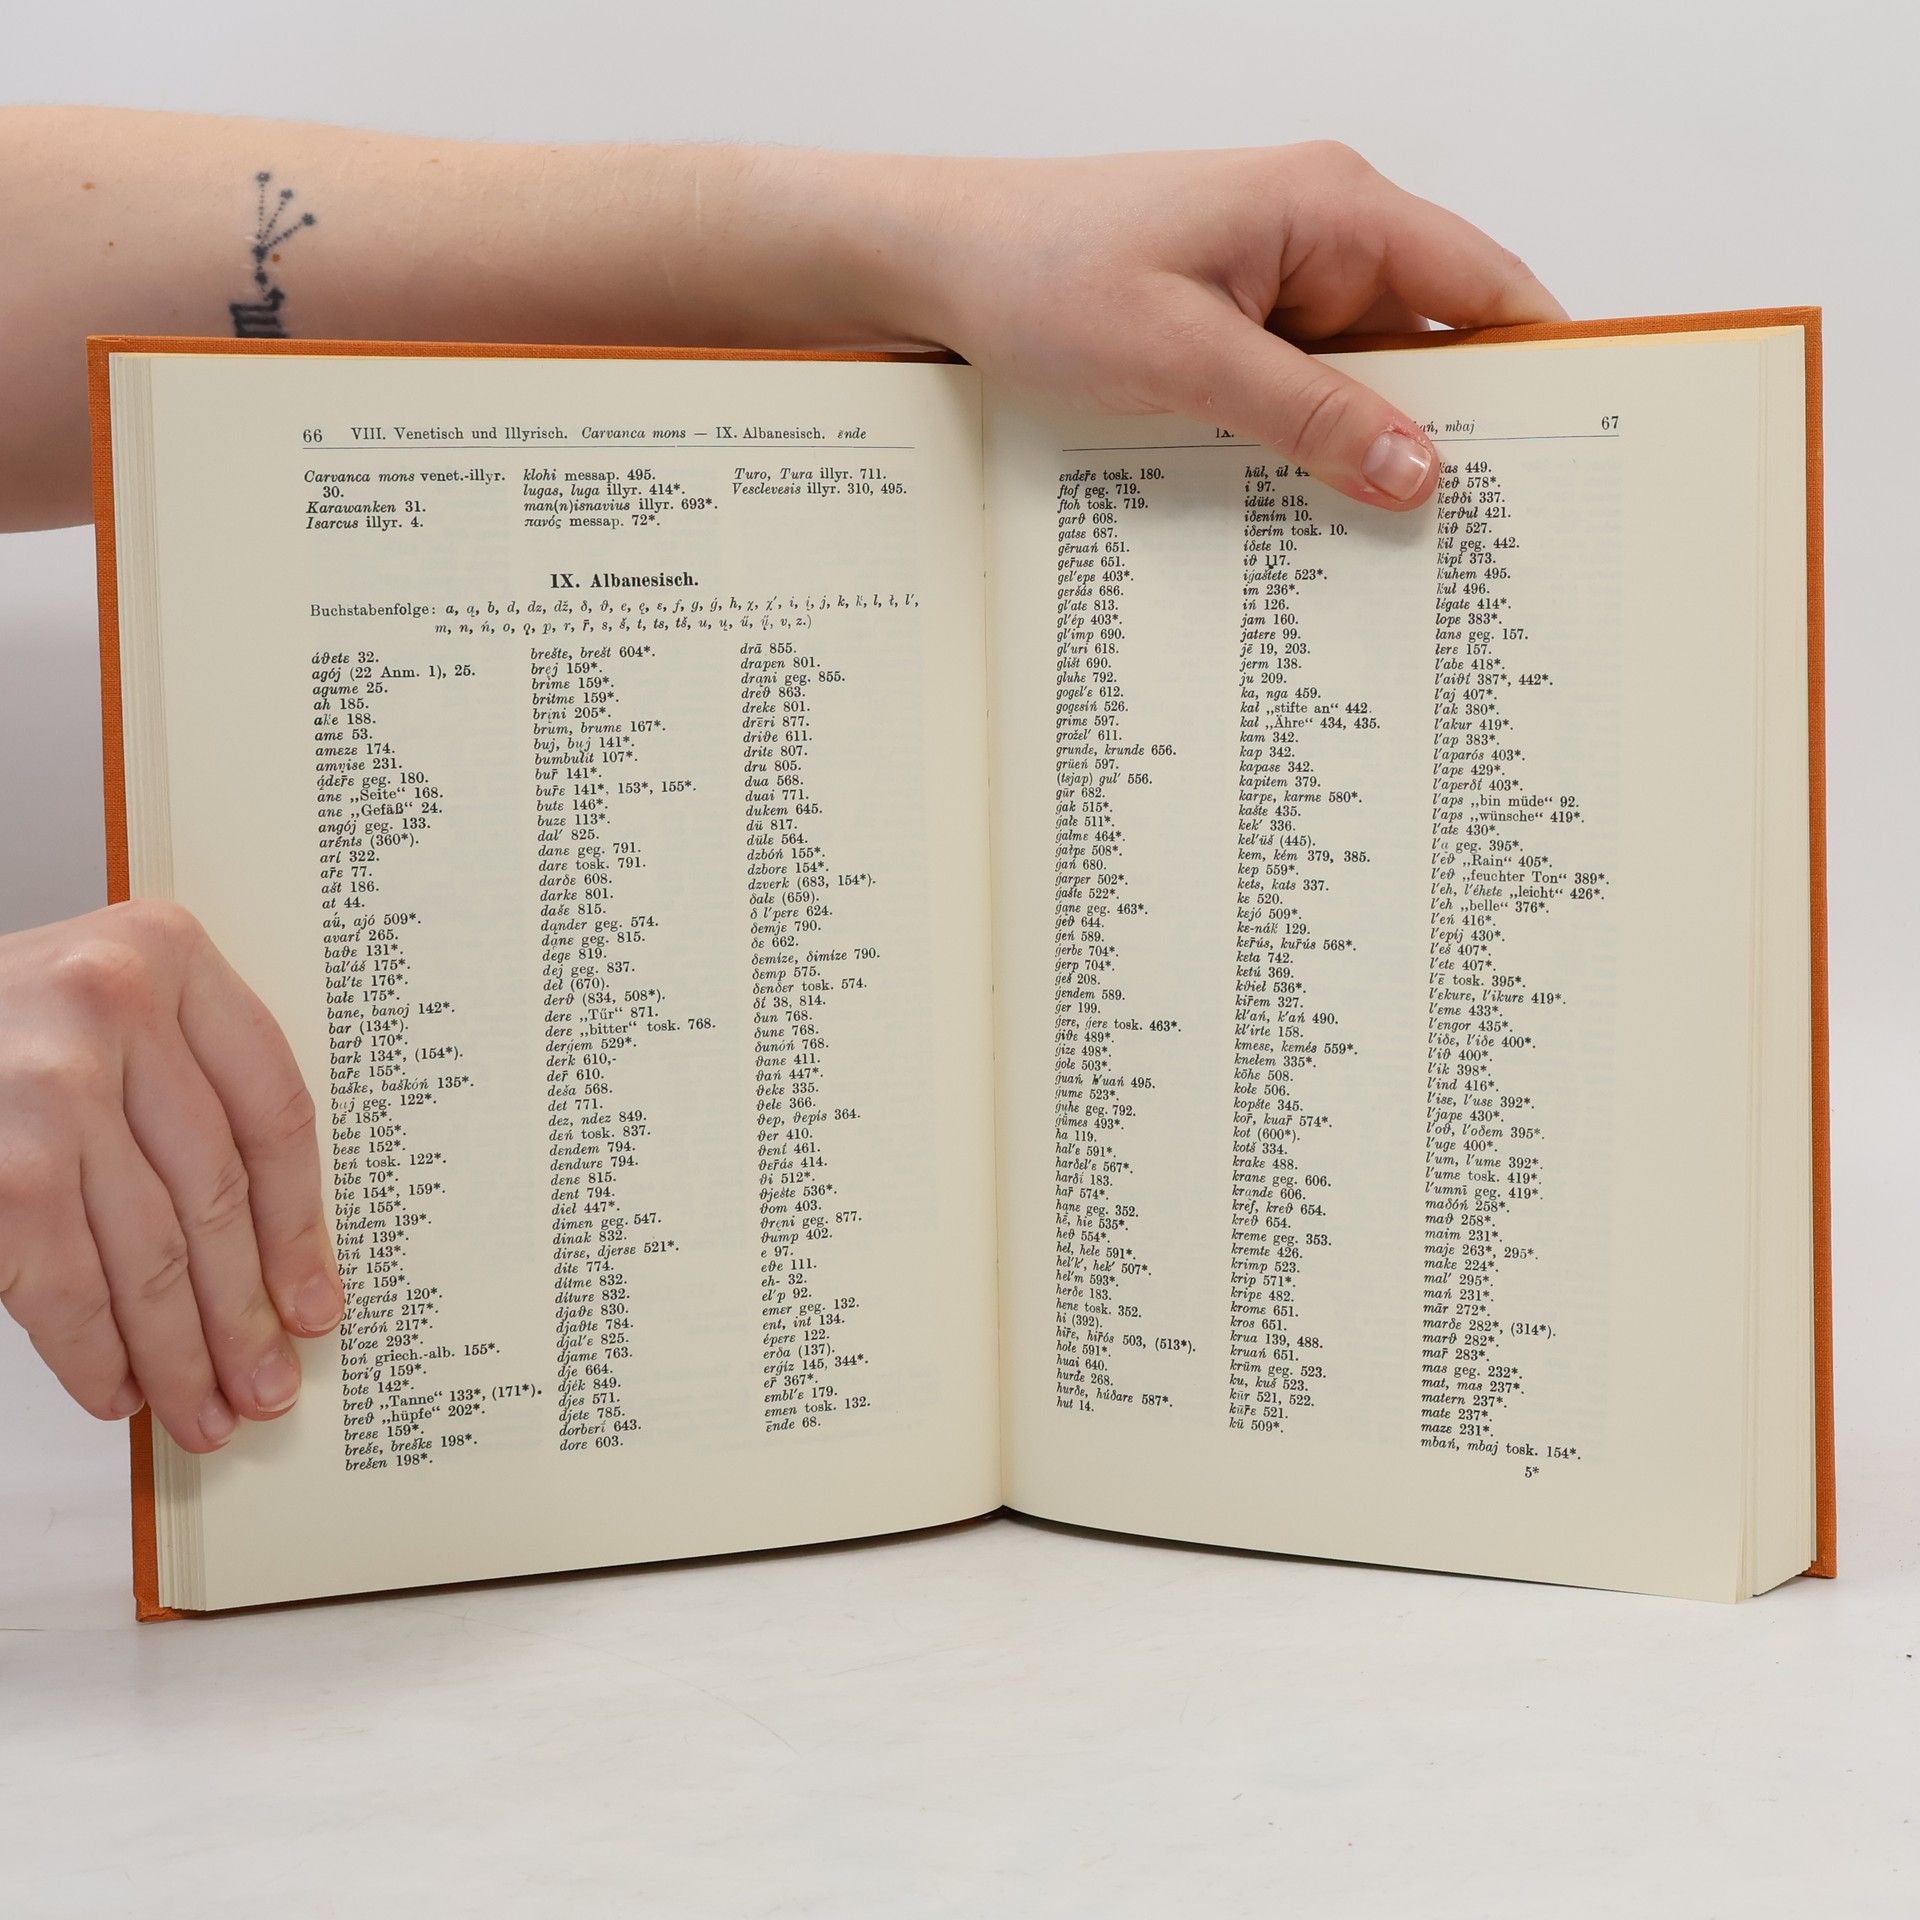 66 VIII. Venetisch und Illyrisch. Carvanca mons — IX. Albanesisch. ënde
Carvanca mons venet.-illyr.
30.
Karawanken 31.
Isarcus illyr. 4.
klohi messap. 495.
lugas, luga illyr. 414*.
man(n)isnavius illyr. 693*.
πανός messap. 72*.
Turo, Tura illyr. 711.
Vesclevesis illyr. 310, 495.
IX. Albanesisch.
Buchstabenfolge: a, ą, b, d, dz, dž, δ, ϑ, e, ę, ε, f, g, ǵ, h, χ, χ′, i, į, j, k, ḱ, l, ł, l′,
m, n, ń, o, ǫ, p, r, r̄, s, š, t, ts, tš, u, ų, ü, ų̈, v, z.)
áϑetε 32.
agój (22 Anm. 1), 25.
agume 25.
ah 185.
aḱe 188.
amε 53.
amεzε 174.
amvise 231.
ąder̄ε geg. 180.
anε „Seite“ 168.
anε „Gefäß“ 24.
angój geg. 133.
arɛ́nts (360*).
arí 322.
ar̄ε 77.
ašt 186.
at 44.
aú, ajó 509*.
avarí 265.
baϑε 131*.
bal′áš 175*.
bal′tε 176*.
balε 175*.
bane, banoj 142*.
bar (134*).
barϑ 170*.
bark 134*, (154*).
bar̄ε 155*.
baškε, baškóń 135*.
bąj geg. 122*.
bē 185*.
bebε 105*.
besε 152*.
beń tosk. 122*.
bibε 70*.
bie 154*, 159*.
bijε 155*.
bindem 139*.
bint 139*.
bīń 143*.
bir 155*.
birε 159*.
bl′egεrás 120*.
bl′ehurε 217*.
bl′eróń 217*.
bl′oze 293*.
boń griech.-alb. 155*.
bori′g 159*.
botε 142*.
breϑ „Tanne“ 133*, (171*).
breϑ „hüpfe“ 202*.
bresε 159*.
brešε, breškε 198*.
brešεn 198*.
breštε, brešt 604*.
bręj 159*.
brimε 159*.
britmε 159*.
brįni 205*.
brum, brumε 167*.
buj, buj 141*.
bumbulit 107*.
bur̄ 141*.
bur̄ε 141*, 153*, 155*.
butε 146*.
buzε 113*.
dal′ 825.
danε geg. 791.
darε tosk. 791.
darδε 608.
darkε 801.
dašε 815.
dąndεr geg. 574.
dąnε geg. 815.
degε 819.
dej geg. 837.
del (670).
derϑ (834, 508*).
derε „Tür“ 871.
derε „bitter“ tosk. 768.
derǵem 529*.
derk 610,-
der̄ 610.
deša 568.
det 771.
dez, ndez 849.
dεń tosk. 837.
dεndεm 794.
dεndurε 794.
dεnε 815.
dεnt 794.
diel 447*.
dimεn geg. 547.
dinak 832.
dirsε, djersε 521*.
ditε 774.
dítmε 832.
díturε 832.
djaϑε 830.
djaϑtε 784.
djal′ε 825.
djamε 763.
dje 664.
djék 849.
djes 571.
djetε 785.
dorberí 643.
dorε 603.
drā 855.
drapεn 801.
drąni geg. 855.
dreϑ 863.
drekε 801.
drēri 877.
driϑε 611.
dritε 807.
dru 805.
dua 568.
duai 771.
dukem 645.
dü 817.
dülε 564.
dzbóń 155*.
dzborε 154*.
dzverk (683, 154*).
δalε (659).
δ l′pεrε 624.
δemjε 790.
δε 662.
δεmízε, δimízε 790.
δεmp 575.
δεndεr tosk. 574.
δí 38, 814.
δun 768.
δunε 768.
δunóń 768.
ϑanε 411.
ϑań 447*.
ϑekε 335.
ϑelε 366.
ϑεp, ϑεpis 364.
ϑεr 410.
ϑεní 461.
ϑεr̄ás 414.
ϑi 512*.
ϑještε 536*.
ϑom 403.
ϑręni geg. 877.
ϑump 402.
e 97.
eϑε 111.
eh- 32.
el′p 92.
emεr geg. 132.
ent, int 134.
épεrε 122.
erδa (137).
erǵíz 145, 344*.
er̄ 367*.
εmbl′ε 179.
εmεn tosk. 132.
ε̄ndε 68.
IX. ań, mbaj 67
εndεr̄ε tosk. 180.
ftof geg. 719.
ftoh tosk. 719.
garϑ 608.
gatsε 687.
gēruań 651.
ger̄usε 651.
gel′εpε 403*.
gεršάs 686.
gl′atε 813.
gl′ép 403*.
gl′imp 690.
gl′uri 618.
glišt 690.
gluhε 792.
gogεl′ε 612.
gogεsíń 526.
grimε 597.
grožεl′ 611.
grundε, krundε 656.
grüεń 597.
(tsjap) gul′ 556.
gür 682.
ǵak 515*.
ǵalε 511*.
ǵalmε 464*.
ǵalpε 508*.
ǵań 680.
ǵarpεr 502*.
ǵaštε 522*.
ǵąnε geg. 463*.
ǵeϑ 644.
ǵeń 589.
ǵerbε 704*.
ǵerp 704*.
ǵeš 208.
ǵεndem 589.
ǵεr 199.
ǵεrε, ǵεrε tosk. 463*.
ǵiϑε 489*.
ǵizε 498*.
ǵolε 503*.
ǵuań, ḱ′uań 495.
ǵumε 523*.
ǵųhε geg. 792.
ǵümεs 493*.
ha 119.
hal′ε 591*.
harδεl′ε 567*.
harδí 183.
har̄ 574*.
hąnε geg. 352.
hē, hie 535*.
heϑ 554*.
hel, helε 591*.
hel′ḱ′, heḱ′ 507*.
hel′m 593*.
herδε 183.
hεnε tosk. 352.
hi (392).
hir̄ε, hir̄ós 503, (513*).
holε 591*.
huai 640.
hurδε 268.
hurδε, húδarε 587*.
hut 14.
hül, ül 44
i 97.
idütε 818.
iδεním 10.
iδεrím tosk. 10.
íδetε 10.
iϑ 117.
iǵaštetε 523*.
im 236*.
iń 126.
jam 160.
jatεrε 99.
jē 19, 203.
jεrm 138.
ju 209.
ka, nga 459.
kal „stifte an“ 442.
kal „Ähre“ 434, 435.
kam 342.
kap 342.
kapasε 342.
kapitεm 379.
karpε, karmε 580*.
kaštε 435.
kek′ 336.
kel′üš (445).
kem, kém 379, 385.
kep 559*.
kets, kats 337.
kε 520.
kεjó 509*.
kε-nák 129.
kεr̄ús, kur̄ús 568*.
kεta 742.
kεtú 369.
kϑiel 536*.
kir̄em 327.
kl′ań, k′ań 490.
kl′irtε 158.
kmesε, kεmés 559*.
knelεm 335*.
kōhε 508.
kolε 506.
kopštε 345.
kor̄, kuar̄ 574*.
kot (600*).
kotš 334.
krakε 488.
kranε geg. 606.
krąndε 606.
kref, kreϑ 654.
kreϑ 654.
kremε geg. 353.
kremtε 426.
krimp 523.
krip 571*.
kripε 482.
kromε 651.
kros 651.
krua 139, 488.
kruań 651.
krüm geg. 523.
ku, kuš 523.
kür 521, 522.
kür̄ε 521.
kü 509*.
ḱas 449.
ḱeϑ 578*.
ḱεϑδi 337.
ḱerϑul 421.
ḱiϑ 527.
ḱil geg. 442.
ḱipí 373.
ḱuhem 495.
ḱul 496.
légatε 414*.
lopε 383*.
lans geg. 157.
lεrε 157.
l′abε 418*.
l′aiϑí 387*, 442*.
l′aj 407*.
l′ak 380*.
l′akur 419*.
l′ap 383*.
l′aparós 403*.
l′apε 429*.
l′apεrδí 403*.
l′aps „bin müde“ 92.
l′aps „wünsche“ 419*.
l′atε 430*.
l′ą geg. 395*.
l′eϑ „Rain“ 405*.
l′eϑ „feuchter Ton“ 389*.
l′eh, l′éhetε „leicht“ 426*.
l′eh „belle“ 376*.
l′eń 416*.
l′epij 430*.
l′eš 407*.
l′etε 407*.
l′ε̄ tosk. 395*.
l′εkurε, l′ikurε 419*.
l′εmε 433*.
l′εngor 435*.
l′iδε, l′iδε 400*.
l′iϑ 400*.
l′ik 398*.
l′ind 416*.
l′isε, l′usε 392*.
l′japε 430*.
l′oϑ, l′oδεm 395*.
l′ugε 400*.
l′um, l′umε 392*.
l′umε tosk. 419*.
l′umni geg. 419*.
maδóń 258*.
maϑ 258*.
maim 231*.
majε 263*, 295*.
makε 224*.
mal′ 295*.
mań 231*.
mār 272*.
marδε 282*, (314*).
marϑ 282*.
mar̄ 283*.
mas geg. 232*.
mat, mas 237*.
matεrn 237*.
matε 237*.
mazε 231*.
mbań, mbaj tosk. 154*.
5*